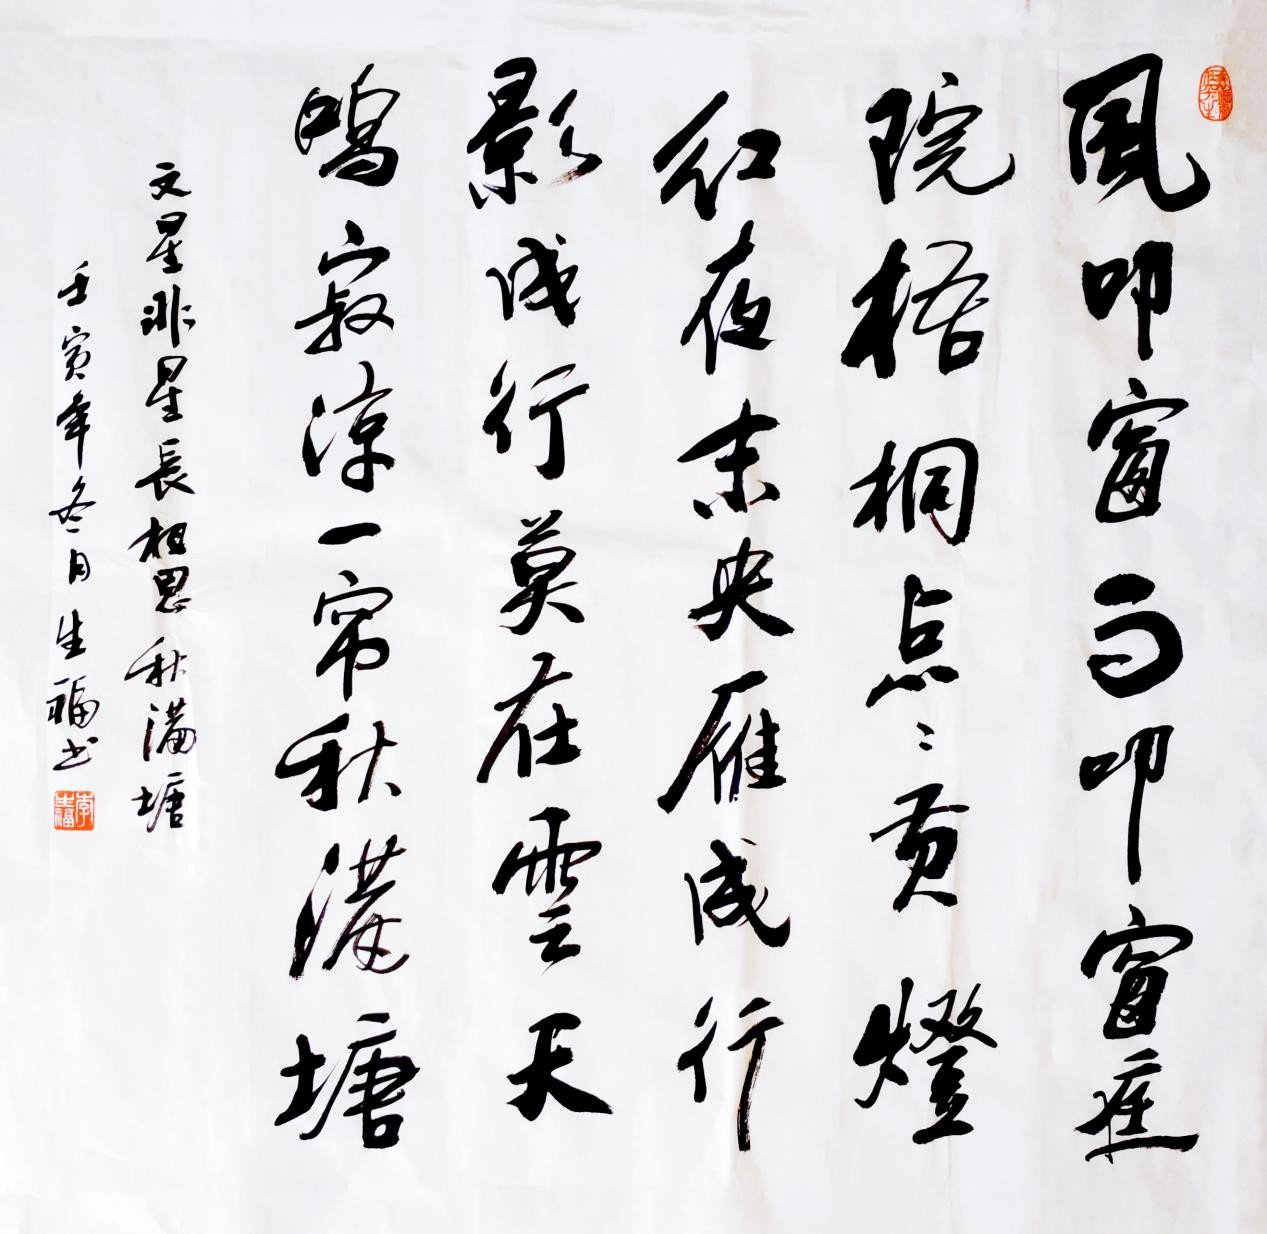 风叩窗雨叩窗庭
院梧桐点点黄灯
红夜未央雁成行
影成行莫在雲天
鳴寂凉一帘秋满塘
文星非星長相思秋满塘
壬寅年冬月生福书